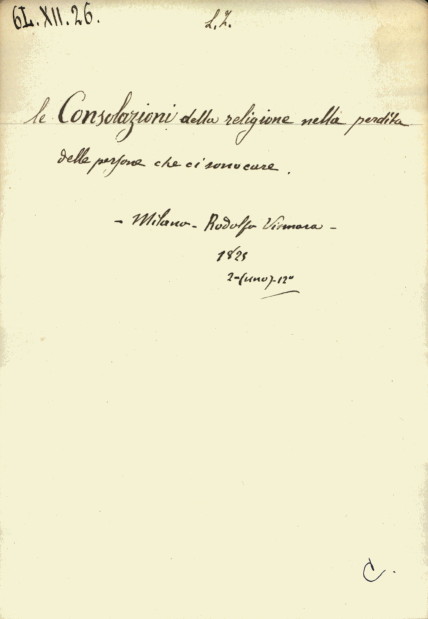 6L.XII.26.
L.Z.
le Consolazioni della religione nella perdita
delle persone che ci sono care.
- Milano - Rodolfo Vismara -
1825
2-(uno)-12°
C.